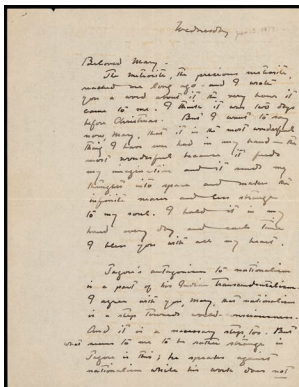 Wednesday Jan. 3 1917
Beloved Mary.
The meteorite, the precious meteorite,
reached me long ago - and I wrote
you a word about it the very hour it
came to me. I think it was two days
before Christmas. But I want to say
now, Mary, that it is the most wonderful
thing I have ever had in my hand - the
most wonderful because it feeds
my imagination and it sends my
thoughts into space and makes the
infinite nearer and less strange
to my soul. I hold it in my
hand every day and each time
I bless you with all my heart.
Tagore's antagonism to nationalism
is a part of his Indian Transcendentalism.
I agree with you, Mary, that nationalism
is a step towards world-
And it is a necessary step, too. But
what seems to me to be rather strange in
Tagore is this; he speaks against
nationalism while his work does not